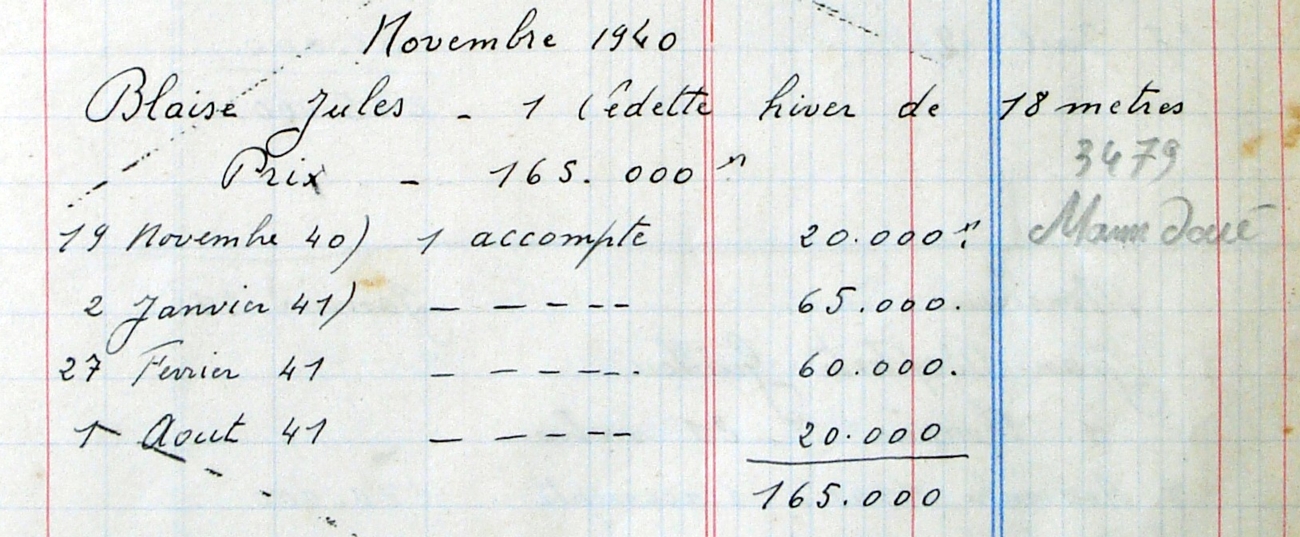 Novembre 1940
Blaise Jules - 1 Vedette hiver de 18 metres
Prix - 165.000 fr
3479
19 Novembre 40) 1 accompte 20.000 fr
2 Janvier 41) — — — — — 65.000.
27 Fevrier 41 — — — — — 60.000.
1 Aout 41 — — — — — 20.000
165.000